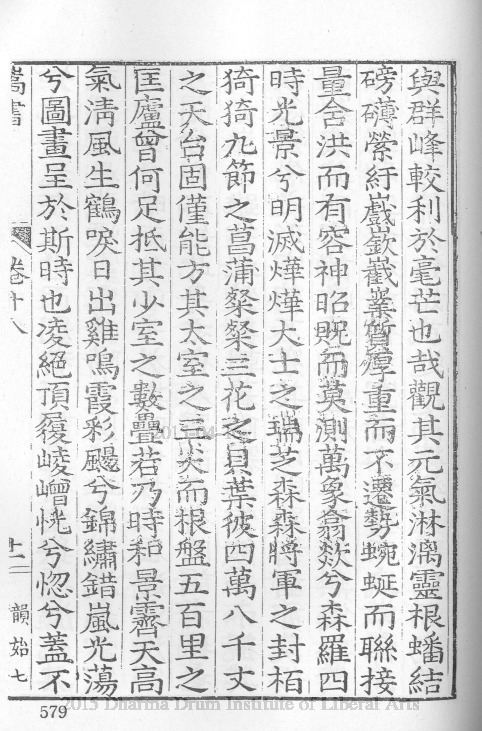 與群峰較利於毫芒也哉觀其元氣淋漓靈根蟠結
磅礴縈紆巇嶔嶻業質厚重而不遷勢蜿蜒而聯接
量含洪而有容神昭貺而莫測萬象翕欻兮森羅四
時光景兮明滅燁燁大士之瑞芝森森將軍之封栢
猗猗九節之菖蒲粲粲三花之貝葉彼四萬八千丈
之天台固僅能方其太室之而根盤五百里之
匡廬曾何足抵其少室之數疊若乃時和景霽天高
氣淸風生鶴唳日出雞鳴霞彩颺兮錦繡錯嵐光蕩
兮圖畫呈於斯時也凌絕頂履崚嶒恍兮惚兮蓋不
嵩書
卷十八
十二
韻始七
579
2013 Dharma Drum Institute of Liberal Arts